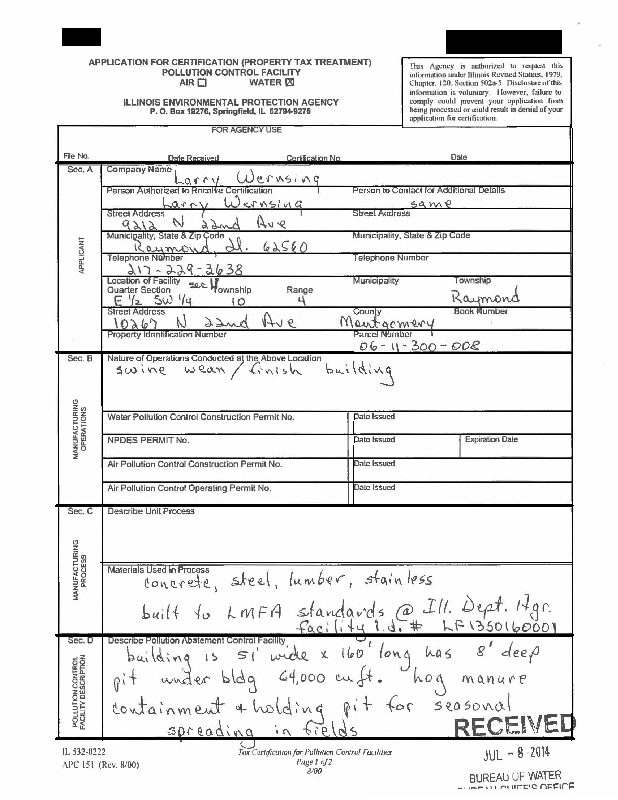 APPLICATION FOR CERTIFICATION (PROPERTY TAX TREATMENT)
POLLUTION CONTROL FACILITY
AIR ☐ WATER ☒
ILLINOIS ENVIRONMENTAL PROTECTION AGENCY
P. O. Box 19276, Springfield, IL 62794-9276
This Agency is authorized to request this
information under Illinois Revised Statues, 1979,
Chapter, 120, Section 502a-5. Disclosure of this
information is voluntary. However, failure to
comply could prevent your application from
being processed or could result in denial of your
application for certification.
FOR AGENCY USE
File No. Date Received Certification No. Date
Sec. A
APPLICANT
Company Name
Larry Wernsing
Person Authorized to Receive Certification Person to Contact for Additional Details
Larry Wernsing same
Street Address Street Address
9212 N 22nd Ave
Municipality, State & Zip Code Municipality, State & Zip Code
Raymond, Il. 62560
Telephone Number Telephone Number
217-229-3638
Location of Facility Municipality Township
Quarter Section sec 11 Township Range
E 1/2 SW 1/4 10 4 Raymond
Street Address County Book Number
10267 N 22nd Ave Montgomery
Property Identification Number Parcel Number
06-11-300-008
Sec. B
MANUFACTURING OPERATIONS
Nature of Operations Conducted at the Above Location
swine wean/finish building
Water Pollution Control Construction Permit No. Date Issued
NPDES PERMIT No. Date Issued Expiration Date
Air Pollution Control Construction Permit No. Date Issued
Air Pollution Control Operating Permit No. Date Issued
Sec. C
MANUFACTURING PROCESS
Describe Unit Process
Materials Used in Process
concrete, steel, lumber, stainless
built to LMFA standards @ Ill. Dept. Agr.
facility i.d. # LF1350160001
Sec. D
POLLUTION CONTROL FACILITY DESCRIPTION
Describe Pollution Abatement Control Facility
building is 51' wide x 160' long has 8' deep
pit under bldg 64,000 cu ft. hog manure
containment & holding pit for seasonal
spreading in fields
RECEIVED
IL 532-0222 Tax Certification for Pollution Control Facilities
APC 151 (Rev. 8/00) Page 1 of 2
8/00
JUL - 8 2014
BUREAU OF WATER
BUREAU CHIEF'S OFFICE